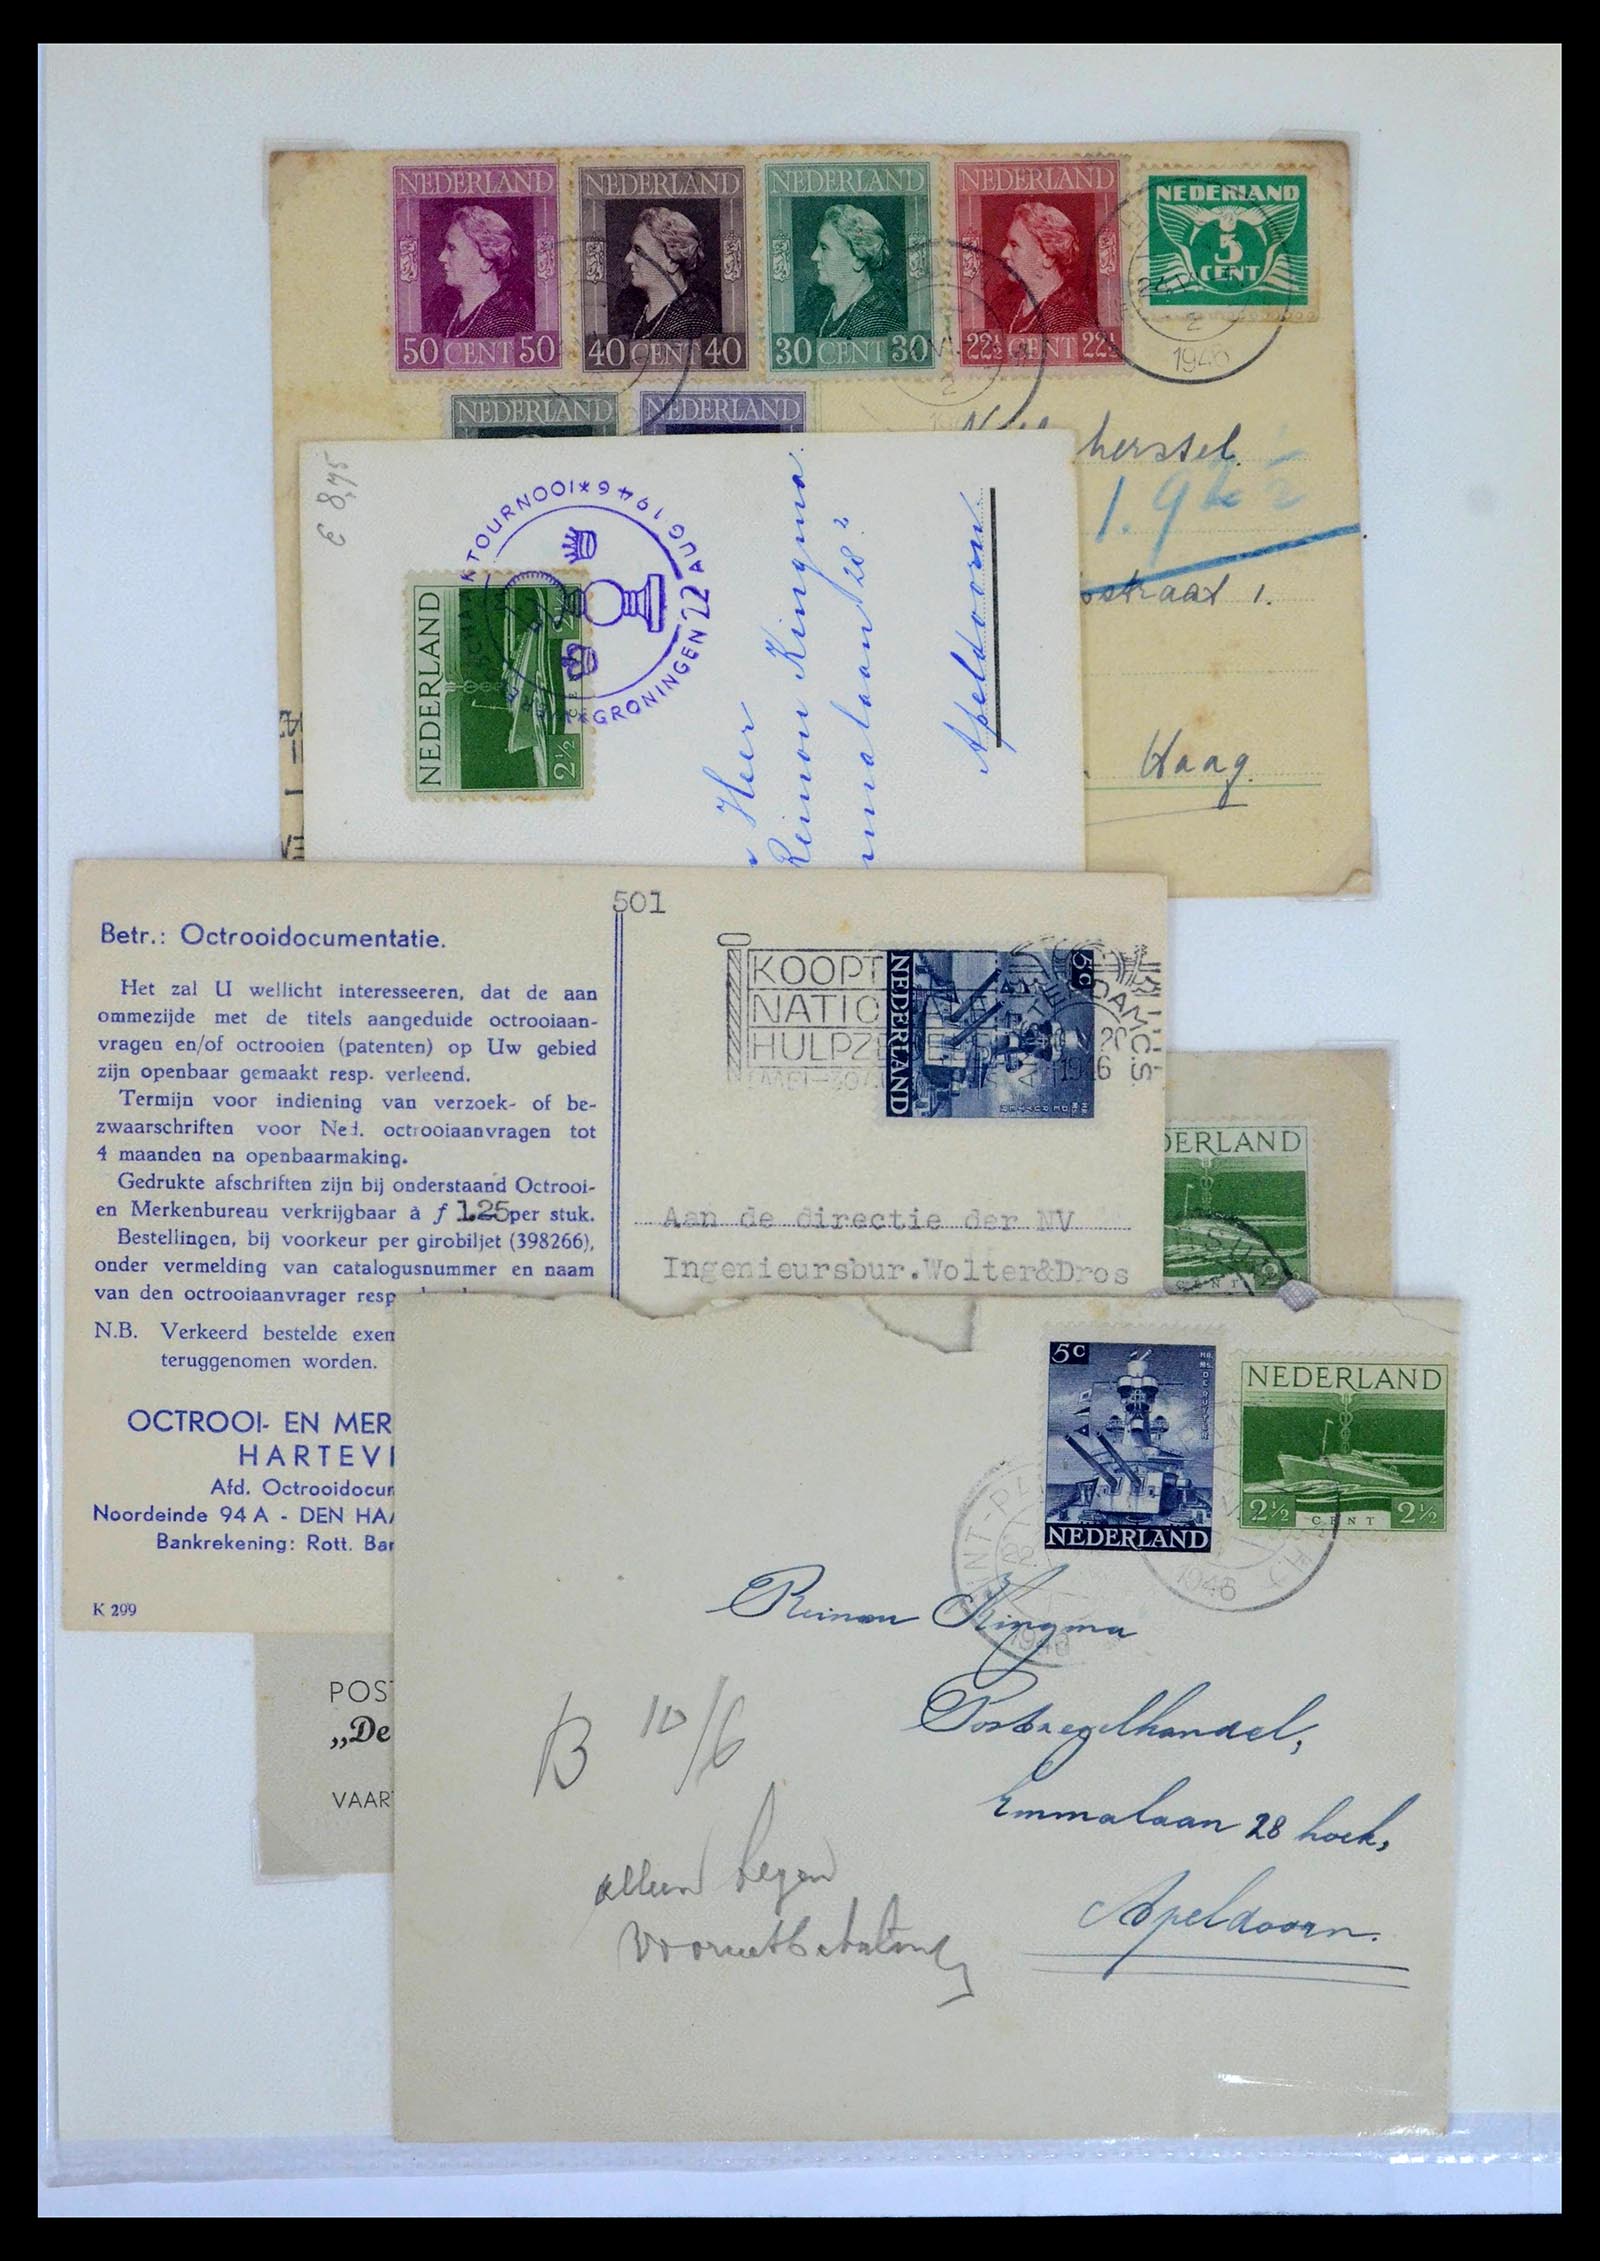 NEDERLAND
50 CENT 50
NEDERLAND
40 CENT 40
NEDERLAND
30 CENT 30
NEDERLAND
22½ CENT 22½
NEDERLAND
5
CENT
2
1946
NEDERLAND
NEDERLAND
herssel.
straat 1.
Haag.
€ 8,45
TOURNOOI * 1946
GRONINGEN 22 AUG
NEDERLAND
2½
Heer
Reinou Kingma.
mmalaan 28²
Apeldoorn.
501
Betr.: Octrooidocumentatie.
Het zal U wellicht interesseeren, dat de aan
ommezijde met de titels aangeduide octrooiaan-
vragen en/of octrooien (patenten) op Uw gebied
zijn openbaar gemaakt resp. verleend.
Termijn voor indiening van verzoek- of be-
zwaarschriften voor Ned. octrooiaanvragen tot
4 maanden na openbaarmaking.
Gedrukte afschriften zijn bij onderstaand Octrooi-
en Merkenbureau verkrijgbaar à f 1.25 per stuk.
Bestellingen, bij voorkeur per girobiljet (398266),
onder vermelding van catalogusnummer en naam
van den octrooiaanvrager resp
N.B. Verkeerd bestelde exem
teruggenomen worden.
OCTROOI- EN MER
HARTEV
Afd. Octrooidocum
Noordeinde 94 A - DEN HAA
Bankrekening: Rott. Ban
K 299
KOOPT
NATIO
HULPZE
5c
NEDERLAND
1946
Aan de directie der NV
Ingenieursbur.Wolter&Dros
DERLAND
CENT 2½
POST
„De
VAAR
5c
NEDERLAND
NEDERLAND
2½ CENT 2½
1946
1946
Reinou Kingma
Postzegelhandel,
Emmalaan 28 hoek,
Apeldoorn.
B 10/6
alleen tegen
vooruitbetaling